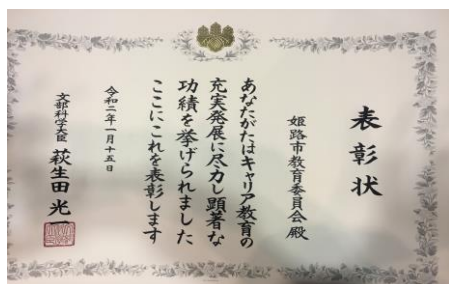 表彰状
姫路市教育委員会殿
あなたがたはキャリア教育の
充実発展に尽力し顕著な
功績を挙げられました
ここにこれを表彰します
令和二年一月十五日
文部科学大臣 萩生田光一